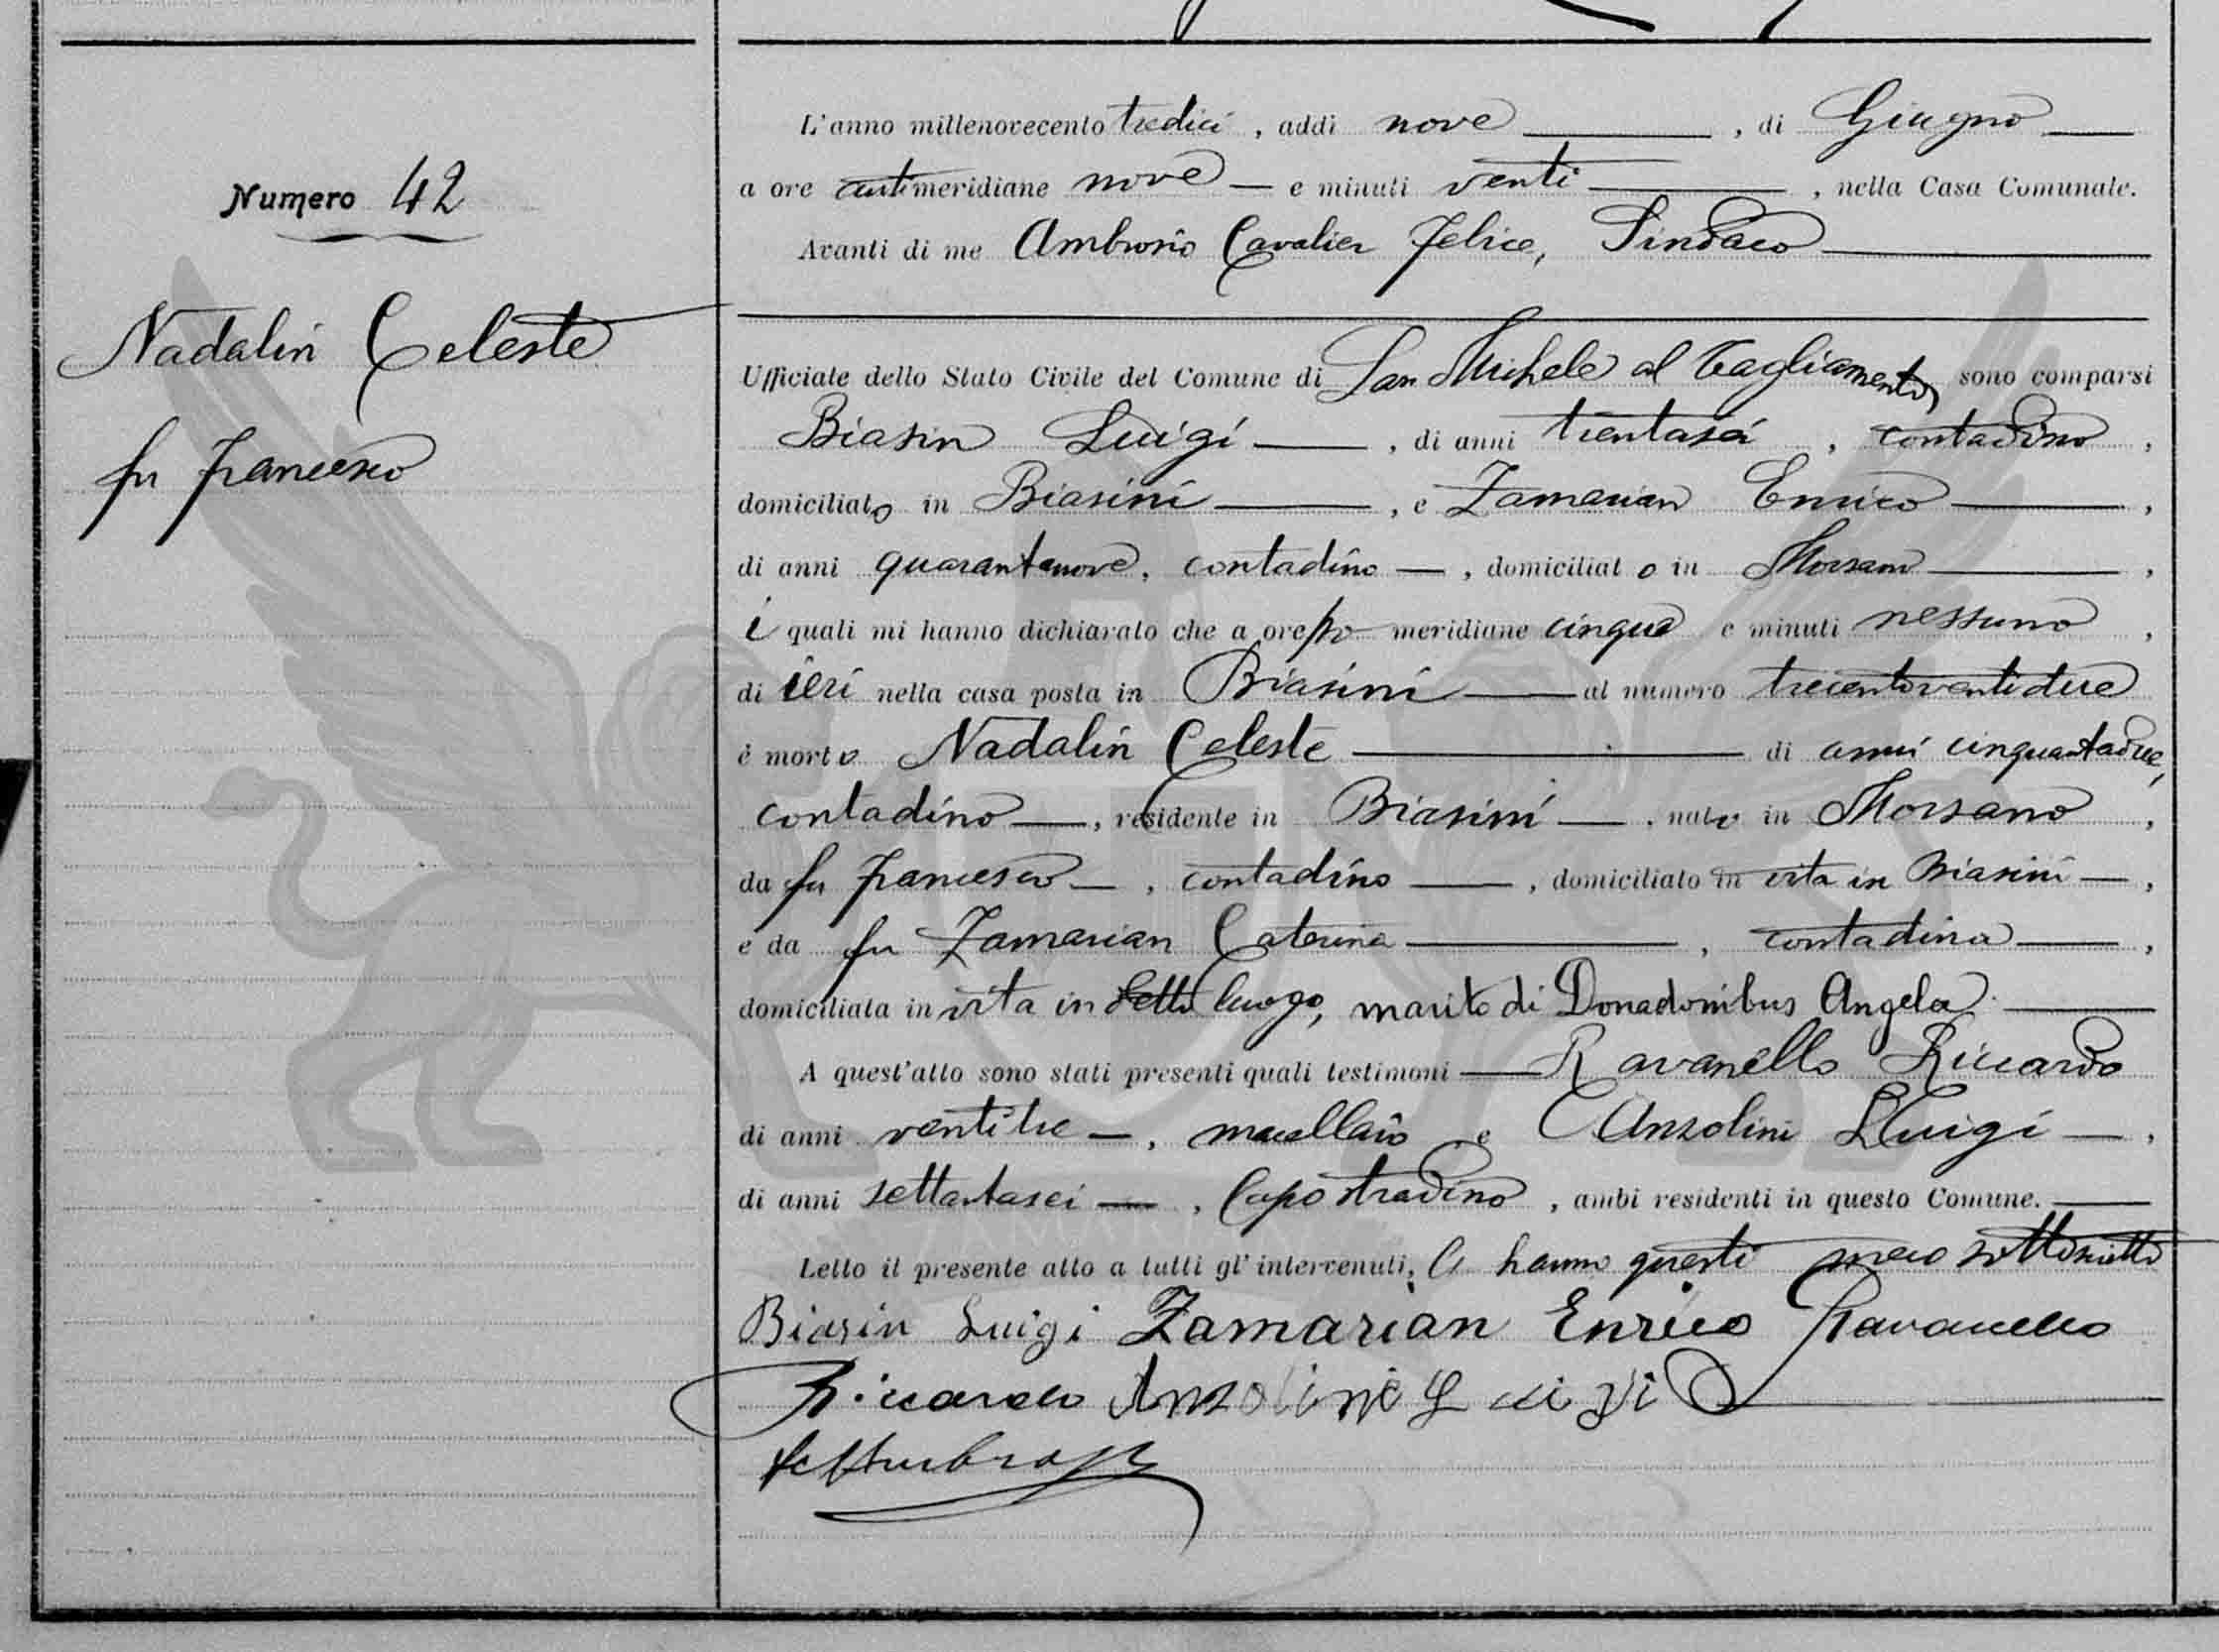 Numero 42
Nadalin Celeste
fu Francesco
L'anno millenovecento tredici, addì nove, di Giugno
a ore antimeridiane nove e minuti venti, nella Casa Comunale.
Avanti di me Ambrosio Cavalier Felice, Sindaco
Ufficiale dello Stato Civile del Comune di San Michele al Tagliamento sono comparsi
Biasin Luigi, di anni trentasei, contadino,
domiciliato in Biasini, e Zamarian Enrico,
di anni quarantanove, contadino, domiciliato in Morsano,
i quali mi hanno dichiarato che a ore po meridiane cinque e minuti nessuno,
di ieri nella casa posta in Biasini al numero trecentoventidue
è morto Nadalin Celeste di anni cinquantadue,
contadino, residente in Biasini, nato in Morsano,
da fu Francesco, contadino, domiciliato in vita in Biasini,
e da fu Zamarian Caterina, contadina,
domiciliata in vita in detto luogo, marito di Donadonibus Angela.
A quest'atto sono stati presenti quali testimoni Ravanello Riccardo
di anni ventitre, macellaio e Anzolini Luigi,
di anni settantasei, Capo stradino, ambi residenti in questo Comune.
Letto il presente atto a tutti gl'intervenuti, li hanno questi meco sottoscritto
Biasin Luigi Zamarian Enrico Ravanello
Riccardo Anzolini Luigi